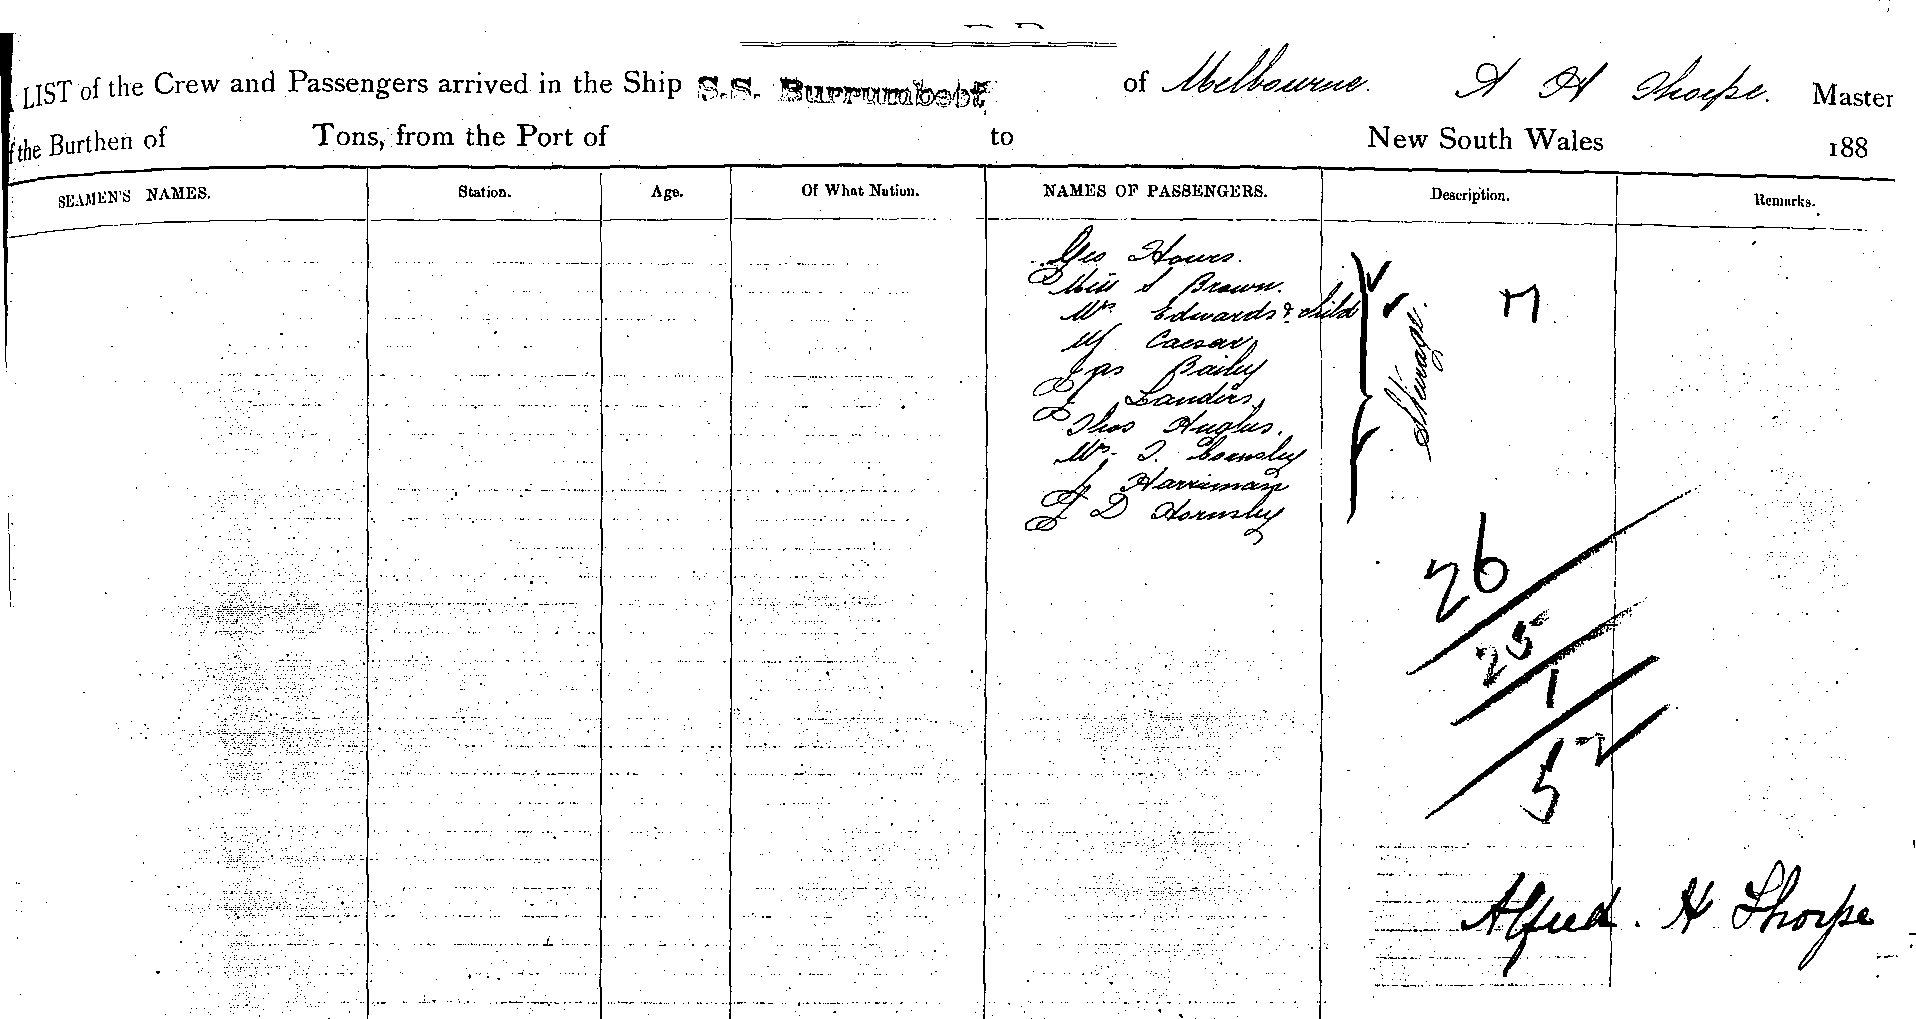 LIST of the Crew and Passengers arrived in the Ship S.S. Burrumbeet of Melbourne. A H Thorpe. Master
of the Burthen of Tons, from the Port of to New South Wales 188
SEAMEN'S NAMES. Station. Age. Of What Nation. NAMES OF PASSENGERS. Description. Remarks.
Geo Hows.
Miss S Brown.
Mrs Edwards & Child
M Caesar
Jas Baily
J Landers
Steerage.
17
Thos Hughes.
Mr. T.
J Harriman
J D Hornsby
26
25
1
52
Alfred. H Thorpe